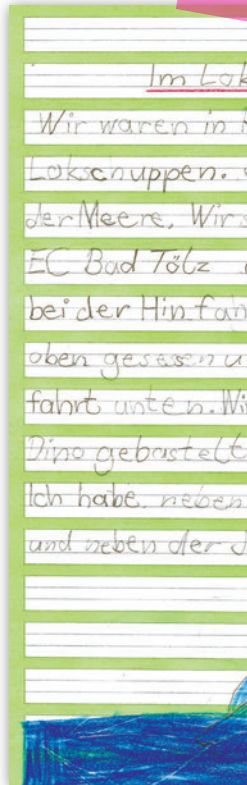 Im Lok
Wir waren in
Lokschuppen.
der Meere. Wir
EC Bad Tölz
bei der Hinfah
oben gesessen u
fahrt unten. Wi
Dino gebastelt
Ich habe neben
und neben der